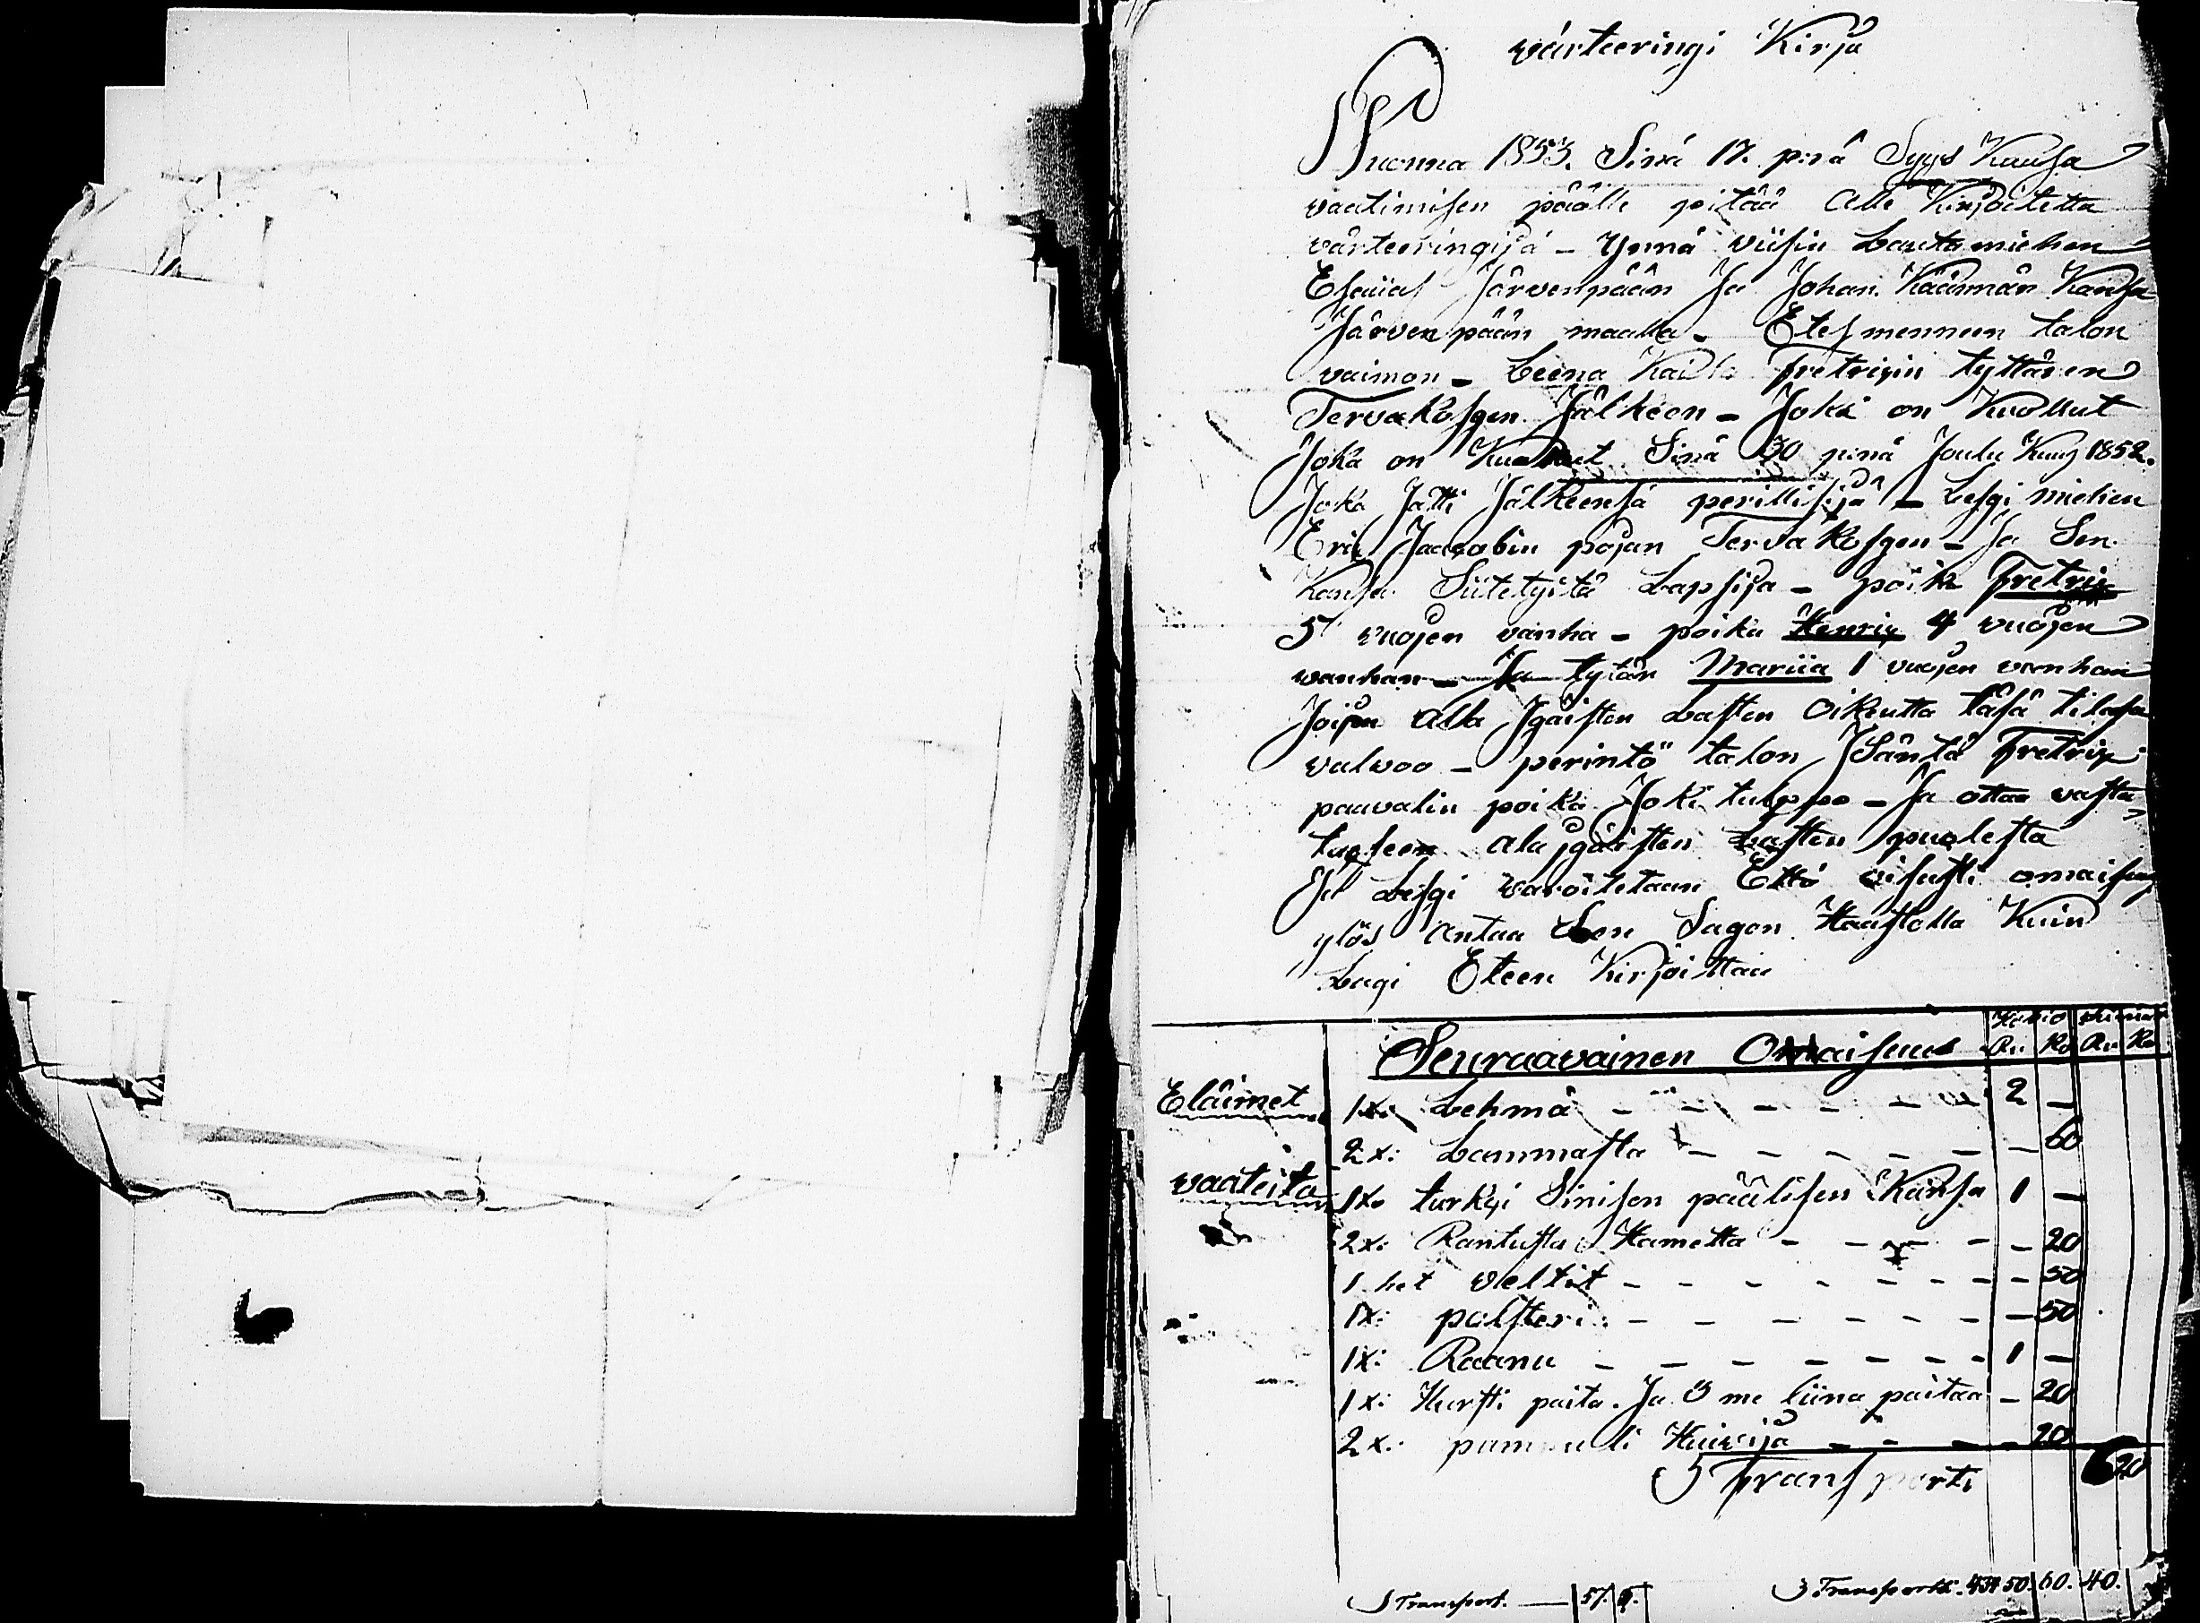 wärteeringi Kirja
Wuonna 1853. Sinä 17. p:nä Syys Kuusa
vaatimisen päälle pitää Alle Kirjoitetta
värteeringijä - Ynnä viisin Lautamiehen
Esaiias Järvenpään Ja Johan. Käärmän Kansa
Järvenpään maalla - Etesmenneen talon
vaimon - Leena Fretrixin tyttären
Tervakosgen Jälkeen - Joka on Kuollut
Joka on Kuollut Sinä 30 p:nä Joulu Kuus 1852.
Joka Jätti Jälkeensä perillisijä - Lesgi miehen
Erik Jaacobin pojan Tervakosgen - Ja Sen
Kansa Siitetyitä Lapsija - poika Fretrix
5 vuojen vanha - poika Henrix 4 vuojen
wanhan - Ja tytär Mariia 1 vuojen vanhan
Joijen Alla Jgäisten Lasten Oikeutta täsä tilasa
valvoo - perintö talon Jsäntä Fretrix
paavalin poika Joki tulppo - Ja ottaa vasta
tuxseen ala jgäisten Lasten puolesta
Ja Lesgi varoitetaan Että visusti omaisuus
ylös Antaa Sen Sagon Haastolla Kuin
Lagi Eteen Kirjoittaa
Seuraavainen Omaisuus Ru Ko Ru Ko
Eläimet 1x: Lehmä - - - - - 2 -
2x: Lammasta - - - - - - 60
vaateita 1x: turkyi Sinisen päälisen Kansa 1 -
2x: Rantusta Hametta - - - - - 20
1 het veltit - - - - - - - 50
1x: polsteri - - - - - - - 50
1x: Raanu - - - - - - - 1 -
1x: Hursti paita. Ja 3 me liina paitaa - 20
2x: Huivija - - - - 20
Transporti 6 20
Transport. - 57.
3 Transporti. 60. 40.